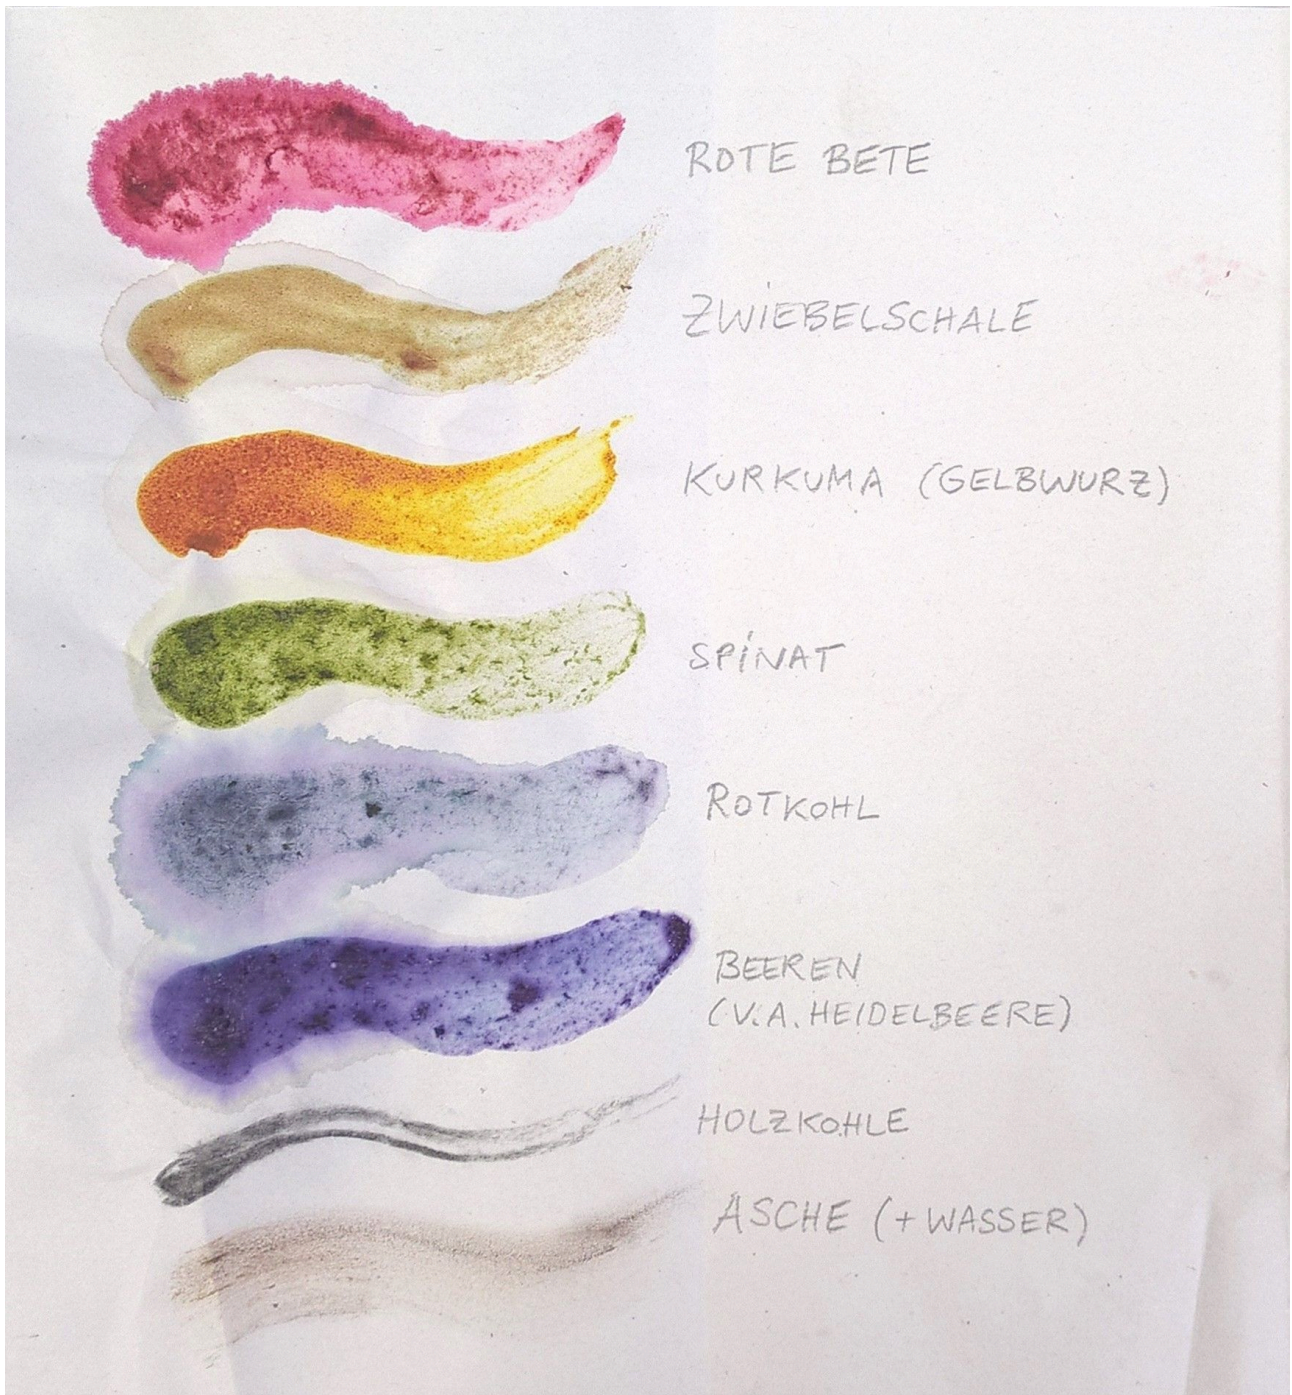 ROTE BETE
ZWIEBELSCHALE
KURKUMA (GELBWURZ)
SPINAT
ROTKOHL
BEEREN
(V.A. HEIDELBEERE)
HOLZKOHLE
ASCHE (+ WASSER)